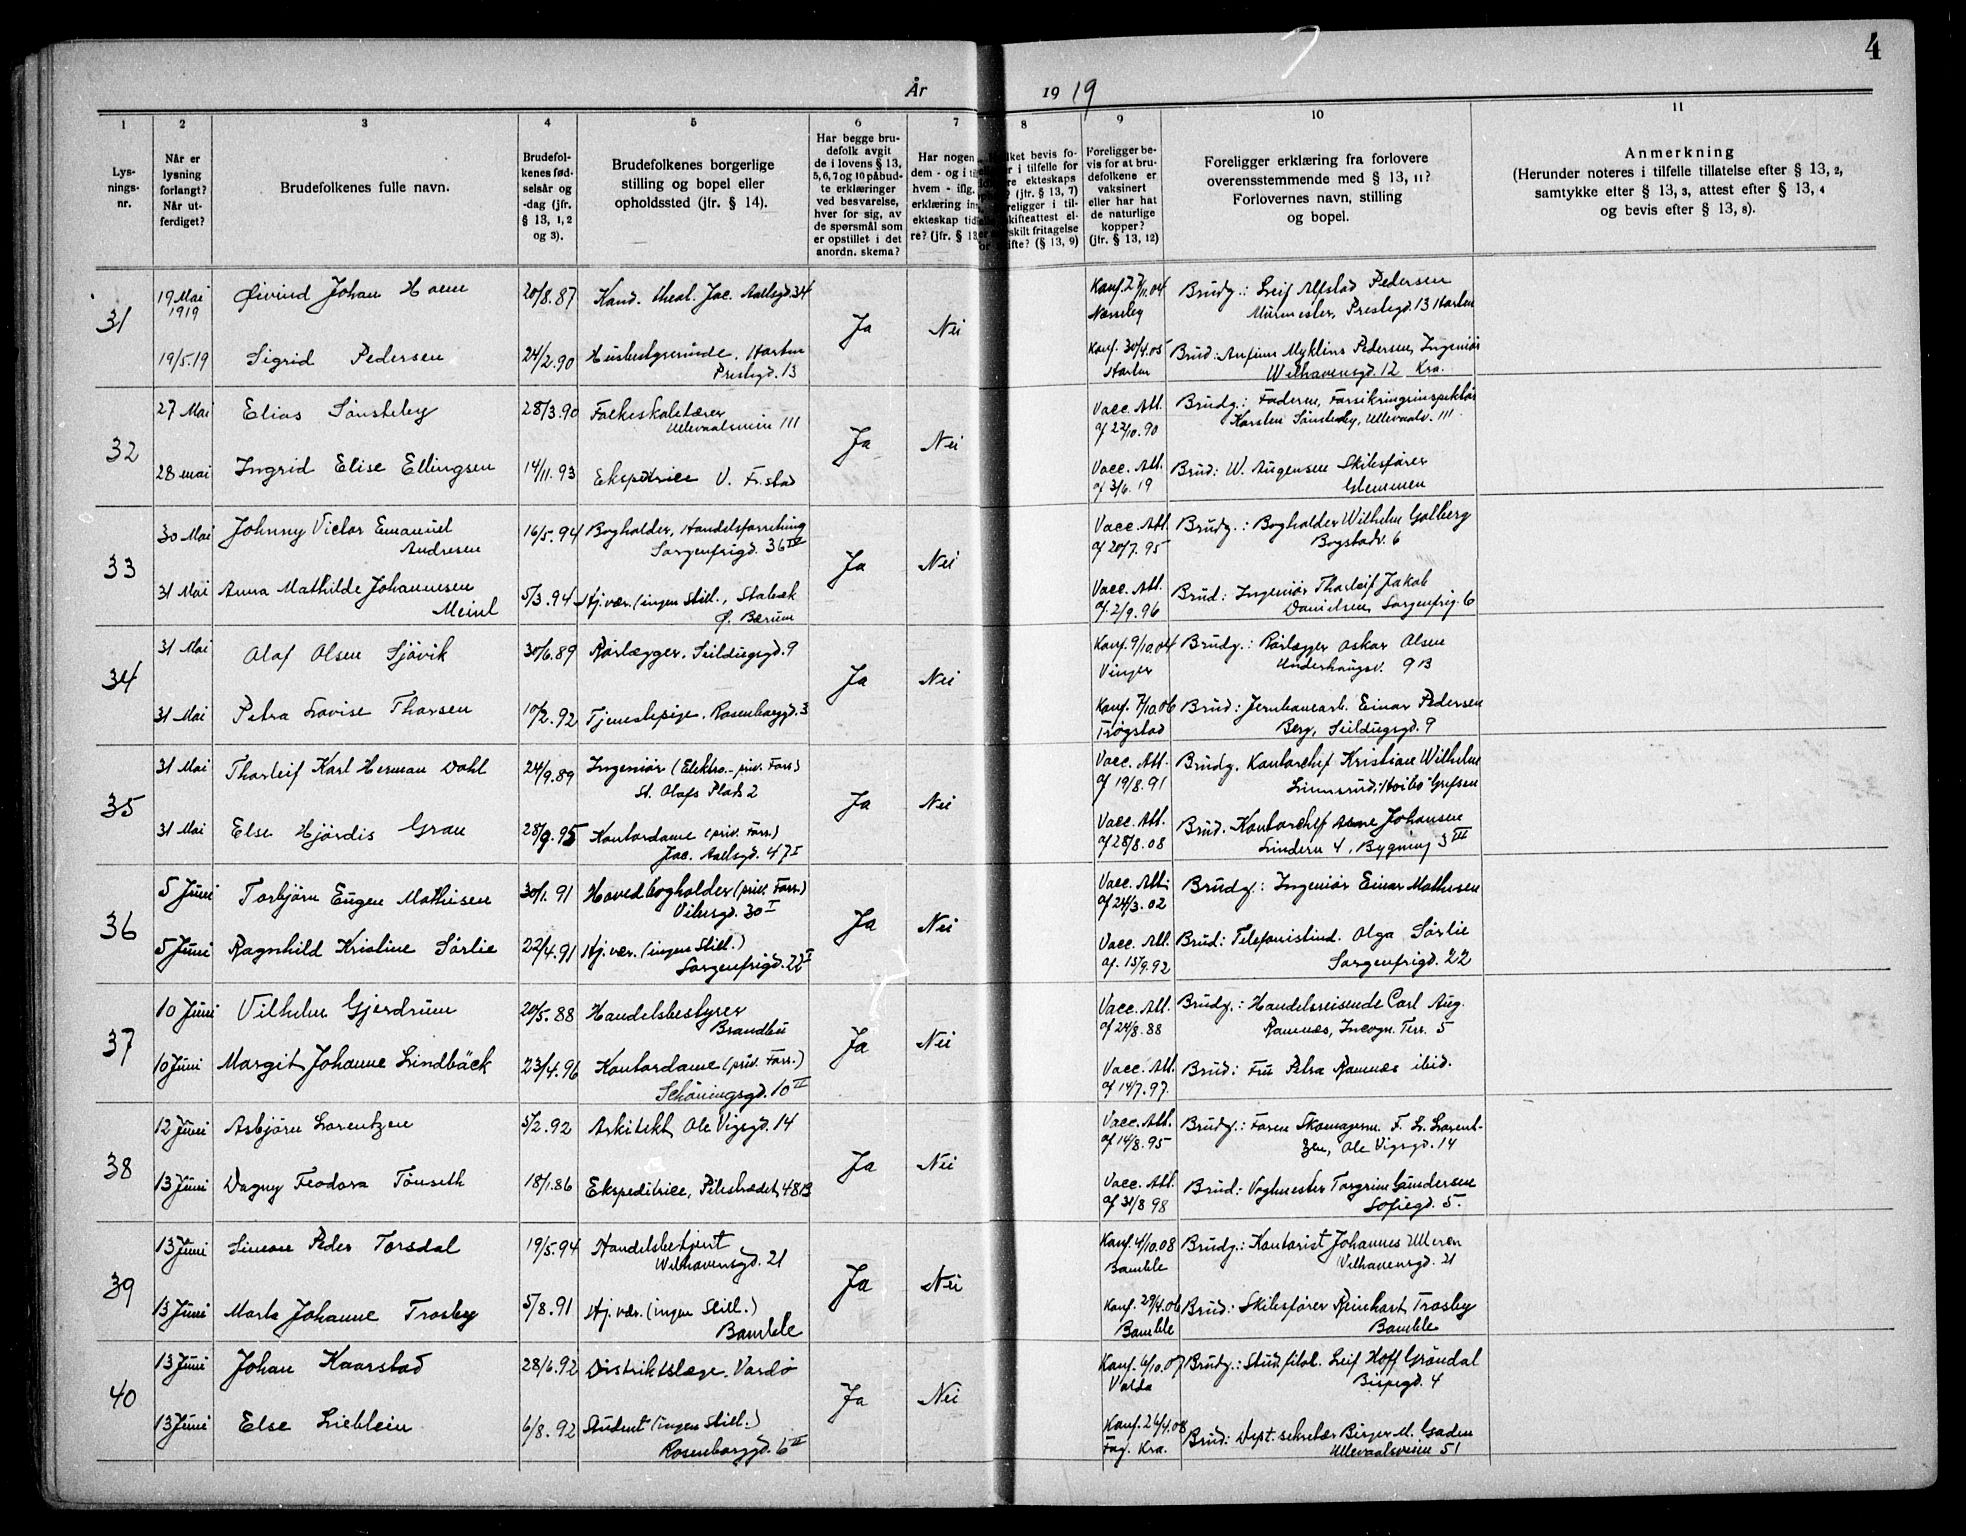 4
År 1919
1 2 3 4 5 6 7 8 9 10 11
Lys-
nings-
nr.
Når er
lysning
forlangt?
Når ut-
ferdiget?
Brudefolkenes fulle navn.
Brudefol-
kenes fød-
selsår og
-dag (jfr.
§ 13, 1, 2
og 3).
Brudefolkenes borgerlige
stilling og bopel eller
opholdssted (jfr. § 14).
Har begge bru-
defolk avgit
de i lovens § 13,
5, 6, 7 og 10 påbud-
te erklæringer
ved besvarelse,
hver for sig, av
de spørsmål som
er opstillet i det
anordn. skema?
Har nogen
dem - og i
hvem - iflg.
erklæring in
ekteskap tid
re? (jfr. § 13
ket bevis fo-
r i tilfelle for
re ekteskaps
? (jfr. § 13, 7)
religger i til-
skifteattest el-
skilt fritagelse
ifte? (§ 13, 9)
Foreligger be-
vis for at bru-
defolkene er
vaksinert
eller har hat
de naturlige
kopper?
(jfr. § 13, 12)
Foreligger erklæring fra forlovere
overensstemmende med § 13, 11?
Forlovernes navn, stilling
og bopel.
Anmerkning
(Herunder noteres i tilfelle tillatelse efter § 13, 2,
samtykke efter § 13, 3, attest efter § 13, 4
og bevis efter § 13, 8).
31
19 Mai 1919 Øivind Johan 20/8.87 Kand. theol. Jac. Aallsgd. 34
Ja Nei
Konf. 27/11.04 Brudg.: Leif Alfstad Pedersen
Nesseby Murmester, Prestegd. 13 Horten
19/5.19 Sigrid Pedersen 24/2.90 Husbestyrerinde, Horten
Prestegd. 13
Konf. 30/4.05 Brud: Anfinn Myklins Pedersen, Ingeniør
Horten Welhavensgd. 12 Kra.
32
27 Mai Elias Sønsteby 28/3.90 Folkeskolelærer
Ullevaalsveien 111
Ja Nei
Vacc. Att. Brudg.: Faderen, Forsikringsinspektør
af 22/10.90 Karsten Sønsteby, Ullevaalsv. 111
28 mai Ingrid Elise Ellingsen 14/11.93 Ekspeditrice V. Fr.stad
Vacc. Att. Brud: W. Augensen Skibsfører
af 3/6.19 Glemmen
33
30 Mai Johnny Victor Emanuel
Andresen
16/5.94 Bogholder, Handelsforretning
Sorgenfrigd. 36 IV
Ja Nei
Vacc. Att. Brudg.: Bogholder Wilhelm Golberg
af 20/7.95 Bogstadv. 6
31 Mai Anna Mathilde Johannesen
Meinl
5/3.94 Hj.vær. (ingen Still., Stabæk
Ø. Bærum
Vacc. Att. Brud: Ingeniør Thorleif Jakob
af 2/9.96 Danielsen, Sorgenfrig. 6
34
31 Mai Olaf Olsen Sjövik 30/6.89 Rørlægger. Seildugsgd. 9
Ja Nei
Konf. 9/10.04 Brudg.: Rørlægger Oskar Olsen
Vinger Underhaugsv. 9B
31 Mai Petra Lovise Thorsen 10/2.92 Tjenestepige. Rosenborggd. 3
Konf. 7/10.06 Brud: Jernbanearb. Einar Pedersen
Trøgstad Berg, Seildugsgd. 9
35
31 Mai Thorleif Karl Herman Dahl 24/9.89 Ingeniør (Elektro.-priv. Forr.)
St. Olafs Plads 2
Ja Nei
Vacc. Att. Brudg. Kontorchef Kristian Wilhelm
af 19/8.91 Grefsen
31 Mai Else Hjördis Grau 28/9.95 Kontordame (priv. Forr.)
Jac. Aallsgd. 47 I
Vacc. Att. Brud. Kontorchef Arne Johansen
af 28/8.08 Lindern 4, Bygning 3 III
36
5 Juni Torbjörn Eugen Mathisen 30/1.91 Hovedbogholder (priv. Forr.)
Vibesgd. 30 I
Ja Nei
Vacc. Att. Brudg.: Ingeniør Einar Mathisen
af 24/3.02
5 Juni Ragnhild Kristine Sørlie 22/4.91 Hj.vær. (ingen Still.)
Sorgenfrigd. 22 I
Vacc. Att. Brud: Telefonistind. Olga Sørlie
af. 15/9.92 Sorgenfrigd. 22
37
10 Juni Vilhelm Gjerdrum 20/5.88 Handelsbestyrer
Brandbu
Ja Nei
Vacc. Att. Brudg.: Handelsreisende Carl Aug.
af 24/8.88 Ramnæs, Incogn. Terr. 5
10 Juni Margit Johanne Lindbäck 23/4.96 Kontordame (priv. Forr.)
Schöningsgd. 10 II
Vacc. Att. Brud: Fru Petra Ramnæs ibid.
af 14/7.97.
38
12 Juni Asbjörn Lorentzen 5/2.92 Arkitekt, Ole Vigsgd. 14
Ja Nei
Vacc. Att. Brudg.: Faren Skomagerm. F. L. Lorent-
af 14/8.95 zen, Ole Vigsgd. 14
13 Juni Dagny Feodora Tönseth 18/1.86 Ekspeditrice, Pilestrædet 48B
Vacc. Att. Brud: Vognmester Torgrim Gundersen
af 31/8 98 Sofiegd. 5.
39
13 Juni Simon Peder Torsdal 19/5.94 Handelsbetjent
Welhavensgd. 21
Ja Nei
Konf. 4/10.08 Brudg.: Kontorist Johannes Ulleren
Bamble Velhavensgd. 21
13 Juni Marta Johanne Trosby 5/8.91 Hj.vær. (ingen Still.)
Bamble
Konf. 29/4.06 Brud: Skibsfører Reinhart Trosby
Bamble Bamble
40
13 Juni Johan Kaarstad 28/6.92 Distriktslæge. Vardö
Ja Nei
Konf. 6/10.07 Brudg.: Stud. filol. Leif Hoff Gröndal
Volda Bispegd. 4
13 Juni Else Lieblein 6/8.92 Student (ingen Still.)
Rosenborggd. 6 II
Konf. 26/4.08 Brud: Dept. sekretær Birger M. Gaden
Fag. Kra. Ullevaalsveien 51